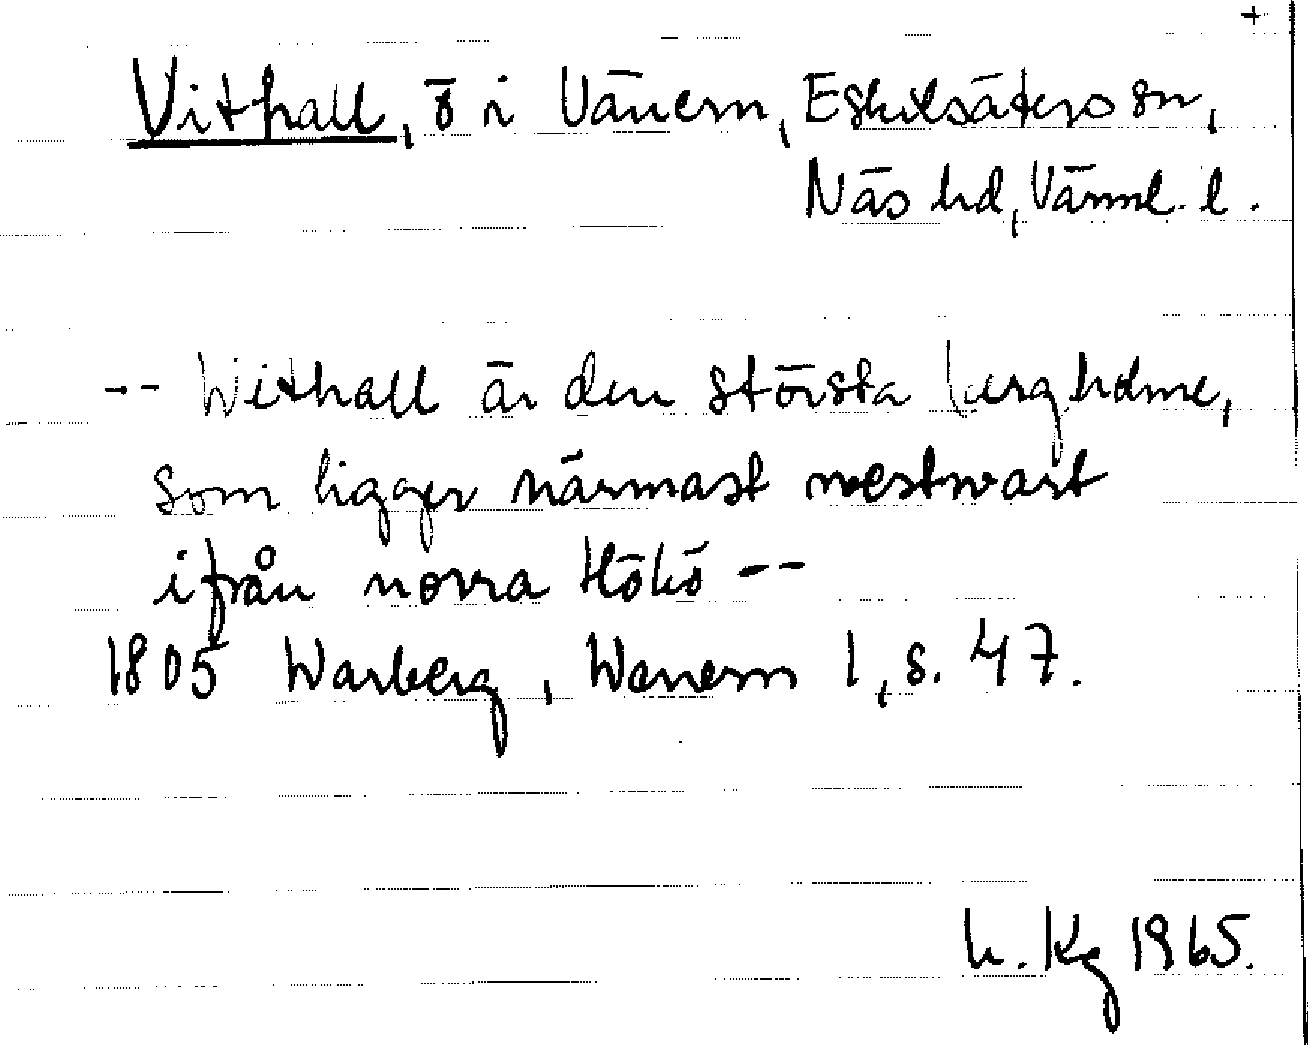 +
Vithall, ö i Vänern, Eskilsäters sn,
Näs hd, Värml. l.
-- Withall är den största bergholme,
som ligger närmast westwart
ifrån norra Hökö --
1805 Warberg, Wenern 1, s. 47.
h. Kg 1965.